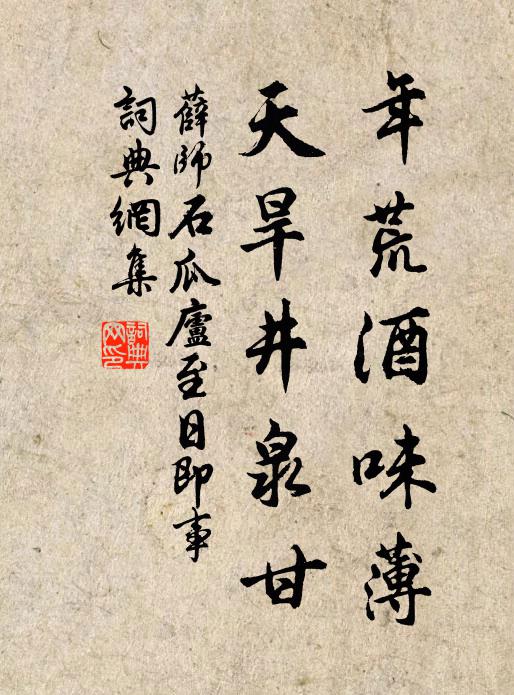 年荒酒味薄
天旱井泉甘
薛師石瓜廬至日即事
詞典網集
詞典網印